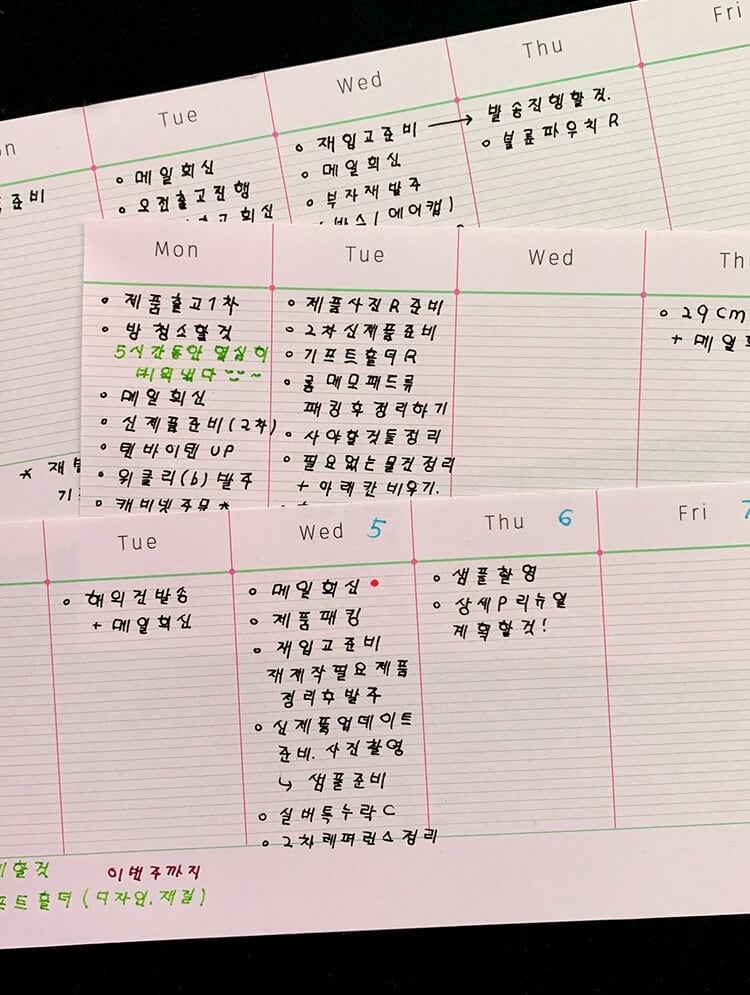 Tue
Wed
Thu
Fri
준비
메일회신
오전출고진행
회신
재입고준비 →
메일회신
부자재발주
(박스/에어캡)
발송진행할것.
볼륨파우치 R
* 재
기
Mon
Tue
Wed
제품출고 1차
방 청소할것
5시간동안 열심히
비워냈다
메일회신
신제품준비(2차)
텐바이텐 UP
위클리(b) 발주
캐비넷주문
제품사진R 준비
2차신제품준비
기프트홀더R
롱 메모패드류
패킹후정리하기
사야할것들정리
필요없는물건정리
+ 아래칸비우기.
29cm
+ 메일
Tue
Wed 5
Thu 6
Fri 7
해외건발송
+ 메일회신
메일회신
제품패킹
재입고준비
재제작필요제품
정리후발주
신제품업데이트
준비. 사진촬영
↳ 샘플준비
실버톡누락C
2차레퍼런스정리
샘플촬영
상세P 리뉴얼
계획할것!
할것
이번주까지
프트홀더(디자인.재질)